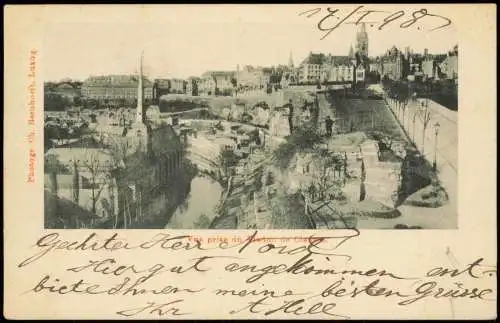 17/I 98
Photogr. Ch. Bernhoeft, Luxbg
Vue prise de
Geehrter Herr
Hier gut angekommen ent-
biete Ihnen meine besten Grüsse
Ihr A. Hell